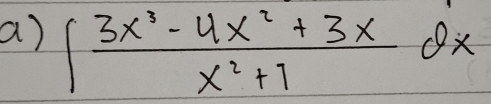 a) ∫ (3x³ - 4x² + 3x) / (x² + 1) dx